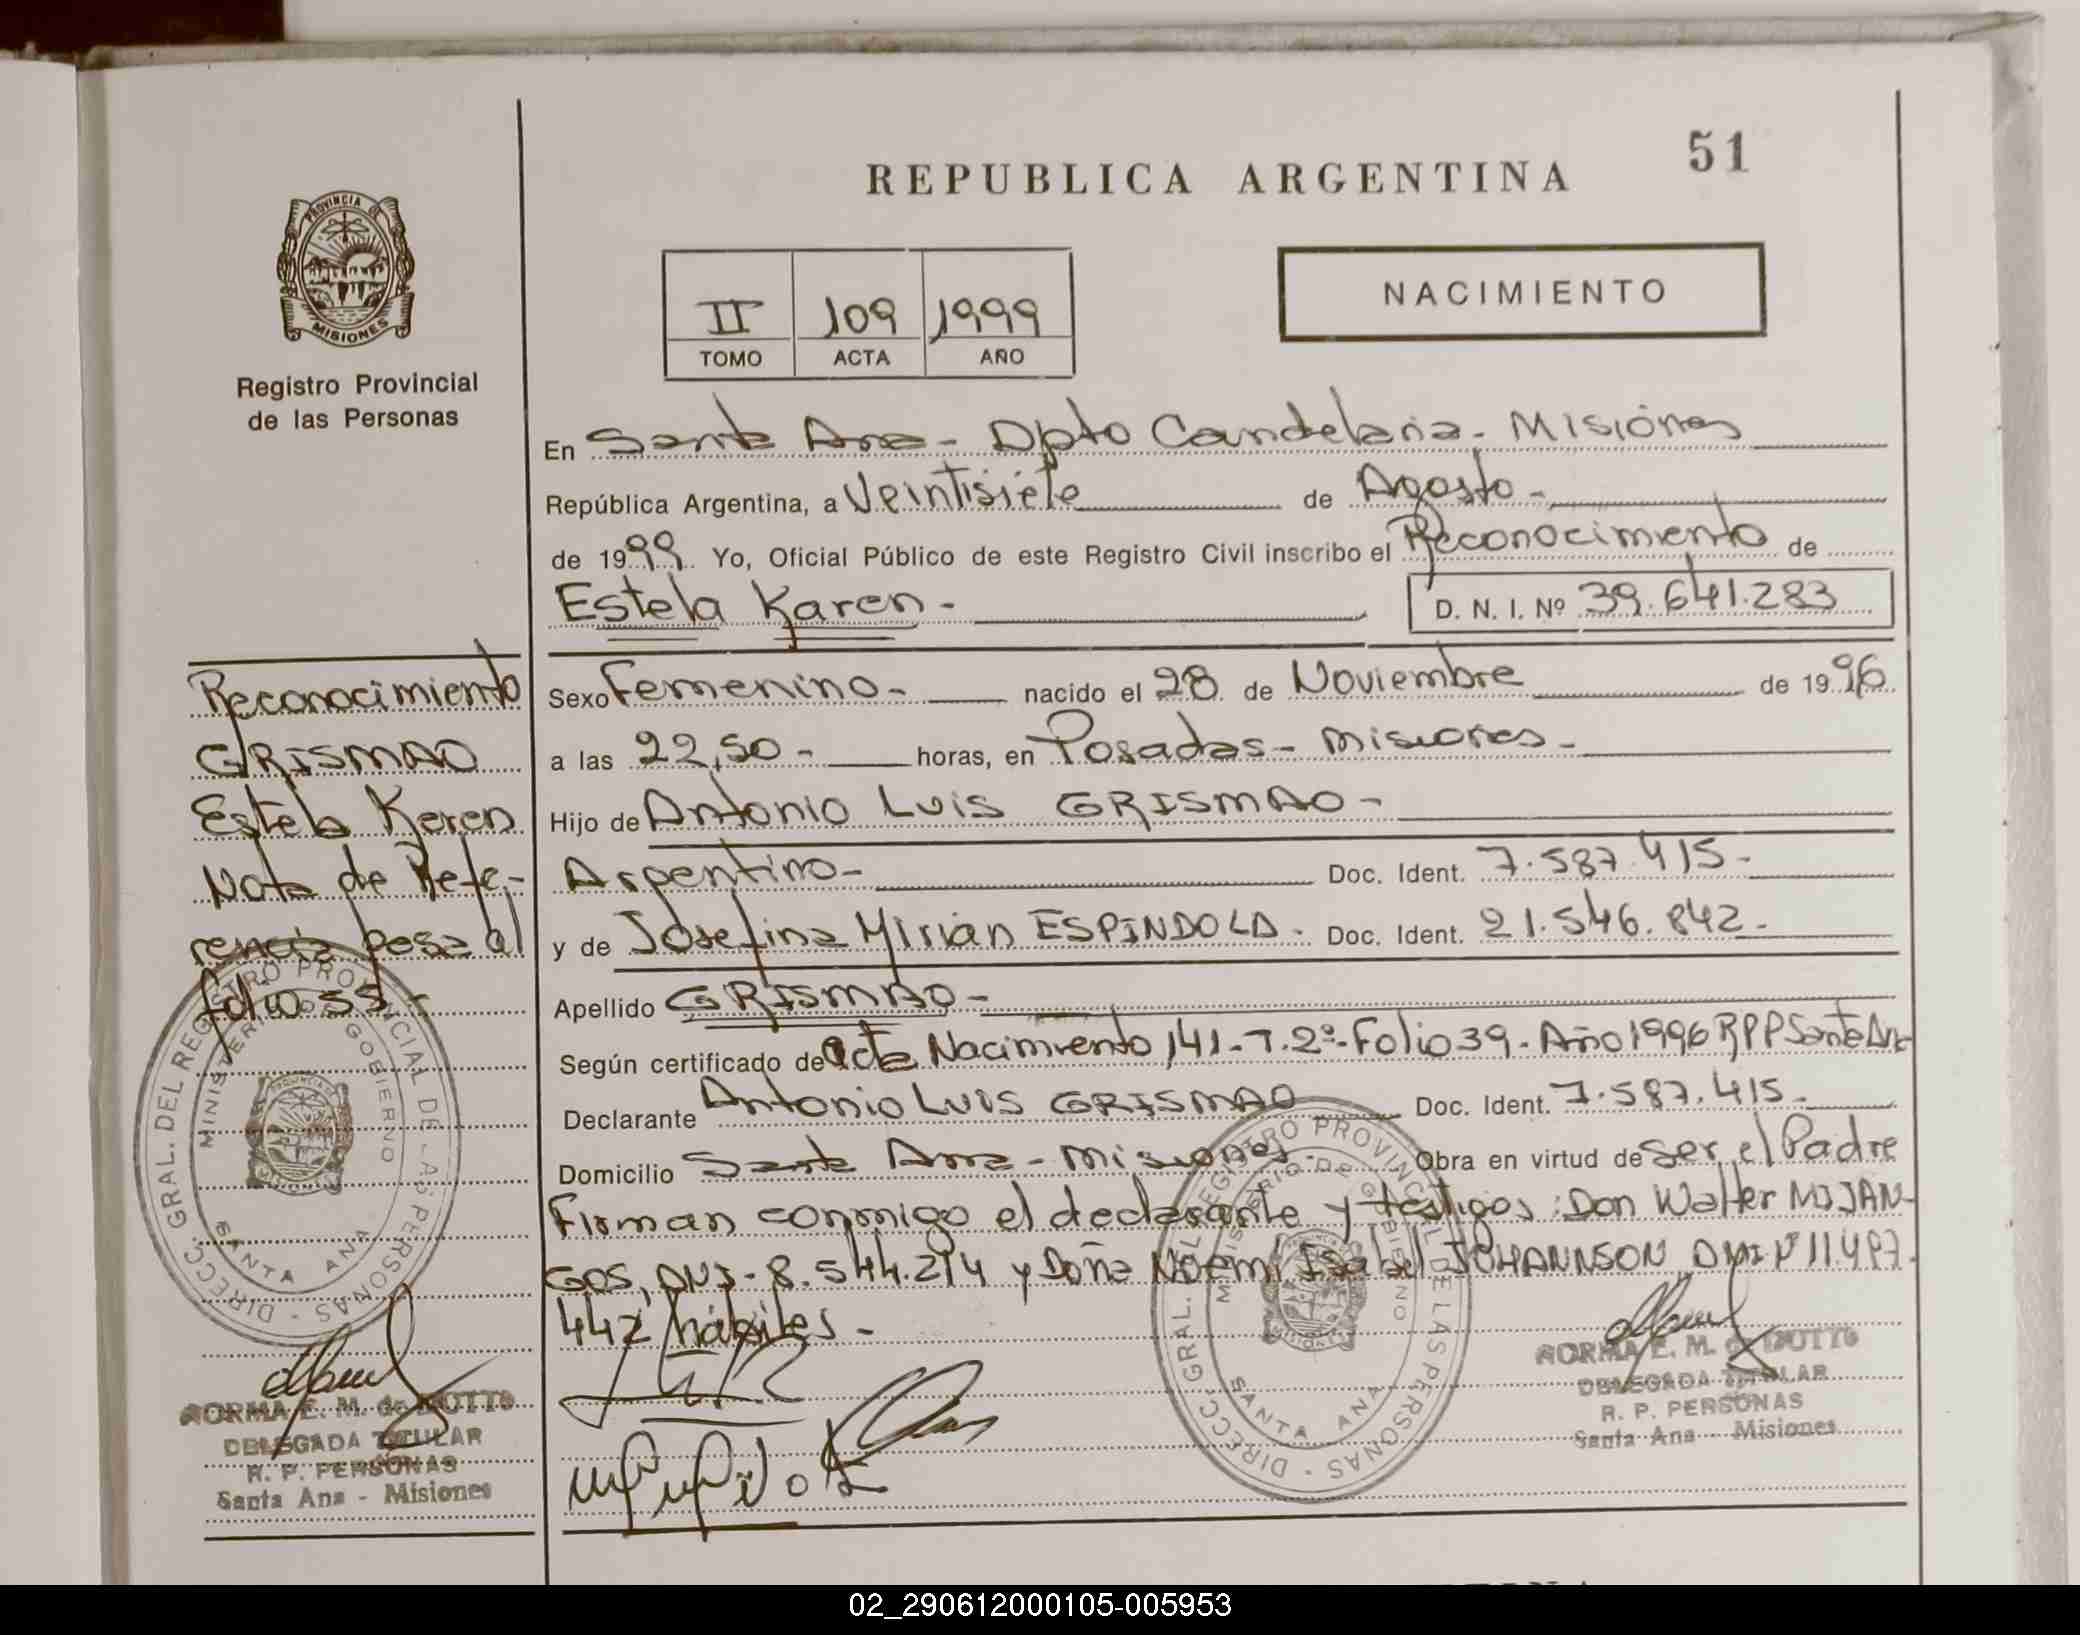 REPUBLICA ARGENTINA
51
PROVINCIA DE
MISIONES
Registro Provincial
de las Personas
II 109 1999
TOMO ACTA AÑO
NACIMIENTO
En Santa Ana - Dpto Candelaria - Misiónes
República Argentina, a Veintisiete de Agosto -
de 1999 Yo, Oficial Público de este Registro Civil inscribo el Reconocimiento de
Estela Karen - D. N. I. Nº 39.641.283
Sexo Femenino - nacido el 28 de Noviembre de 1996
a las 22,50 - horas, en Posadas - Misiones -
Hijo de Antonio Luis GRISMAO -
Argentino - Doc. Ident. 7.587.415 -
y de Josefina Mirian ESPINDOLA - Doc. Ident. 21.546.842 -
Apellido GRISMAO -
Según certificado de Acta Nacimiento 141 - T. 2º - Folio 39 - Año 1996 RPP Santa Ana
Declarante Antonio Luis GRISMAO Doc. Ident. 7.587.415 -
Domicilio Santa Ana - Misiones - Obra en virtud de ser el Padre
Firman conmigo el declarante y testigos: Don Walter MIJAN-
GOS, DNI - 8.544.214 y Doña Noemi Isabel JOHANNSON DNI Nº 11.497.
442 hábiles -
Reconocimiento
GRISMAO
Estela Karen
Nota de Refe-
rencia pasa al
folio 55 -
DIRECC. GRAL. DEL REGISTRO PROVINCIAL DE LAS PERSONAS
MINISTERIO DE GOBIERNO
SANTA ANA
NORMA E. M. de
DELEGADA TITULAR
R. P. PERSONAS
Santa Ana - Misiones
DIRECC. GRAL. DEL REGISTRO PROVINCIAL DE LAS PERSONAS
MINISTERIO DE GOBIERNO
SANTA ANA
NORMA E. M. de
DELEGADA TITULAR
R. P. PERSONAS
Santa Ana - Misiones
02_290612000105-005953